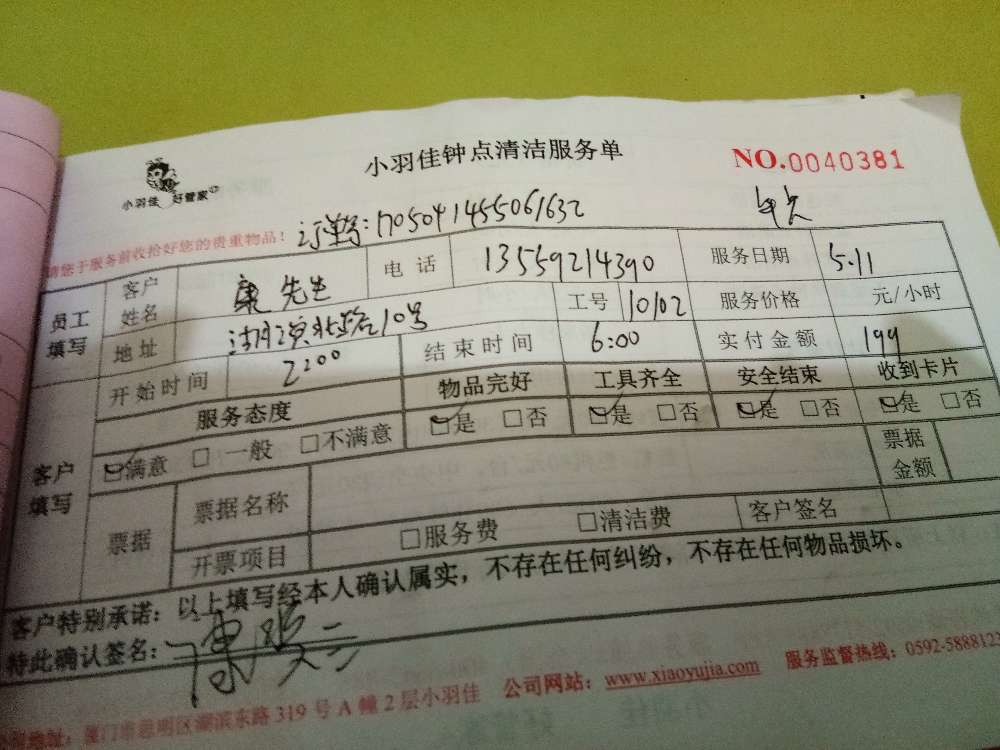 小羽佳钟点清洁服务单
NO.0040381
小羽佳 好管家
请您于服务前收拾好您的贵重物品!
订单号:1705041455061632
员工填写 客户姓名 康先生 电话 13559214390 服务日期 5.11
地址 湖滨北路10号 工号 10102 服务价格 元/小时
开始时间 2:00 结束时间 6:00 实付金额 199
客户填写 服务态度 物品完好 工具齐全 安全结束 收到卡片
☑满意 □一般 □不满意 ☑是 □否 ☑是 □否 ☑是 □否 ☑是 □否
票据 票据名称 票据金额
开票项目 □服务费 □清洁费 客户签名
客户特别承诺:以上填写经本人确认属实,不存在任何纠纷,不存在任何物品损坏。
特此确认签名:
地址:厦门市思明区湖滨东路 319 号 A 幢 2 层小羽佳 公司网站:www.xiaoyujia.com 服务监督热线:0592-588812